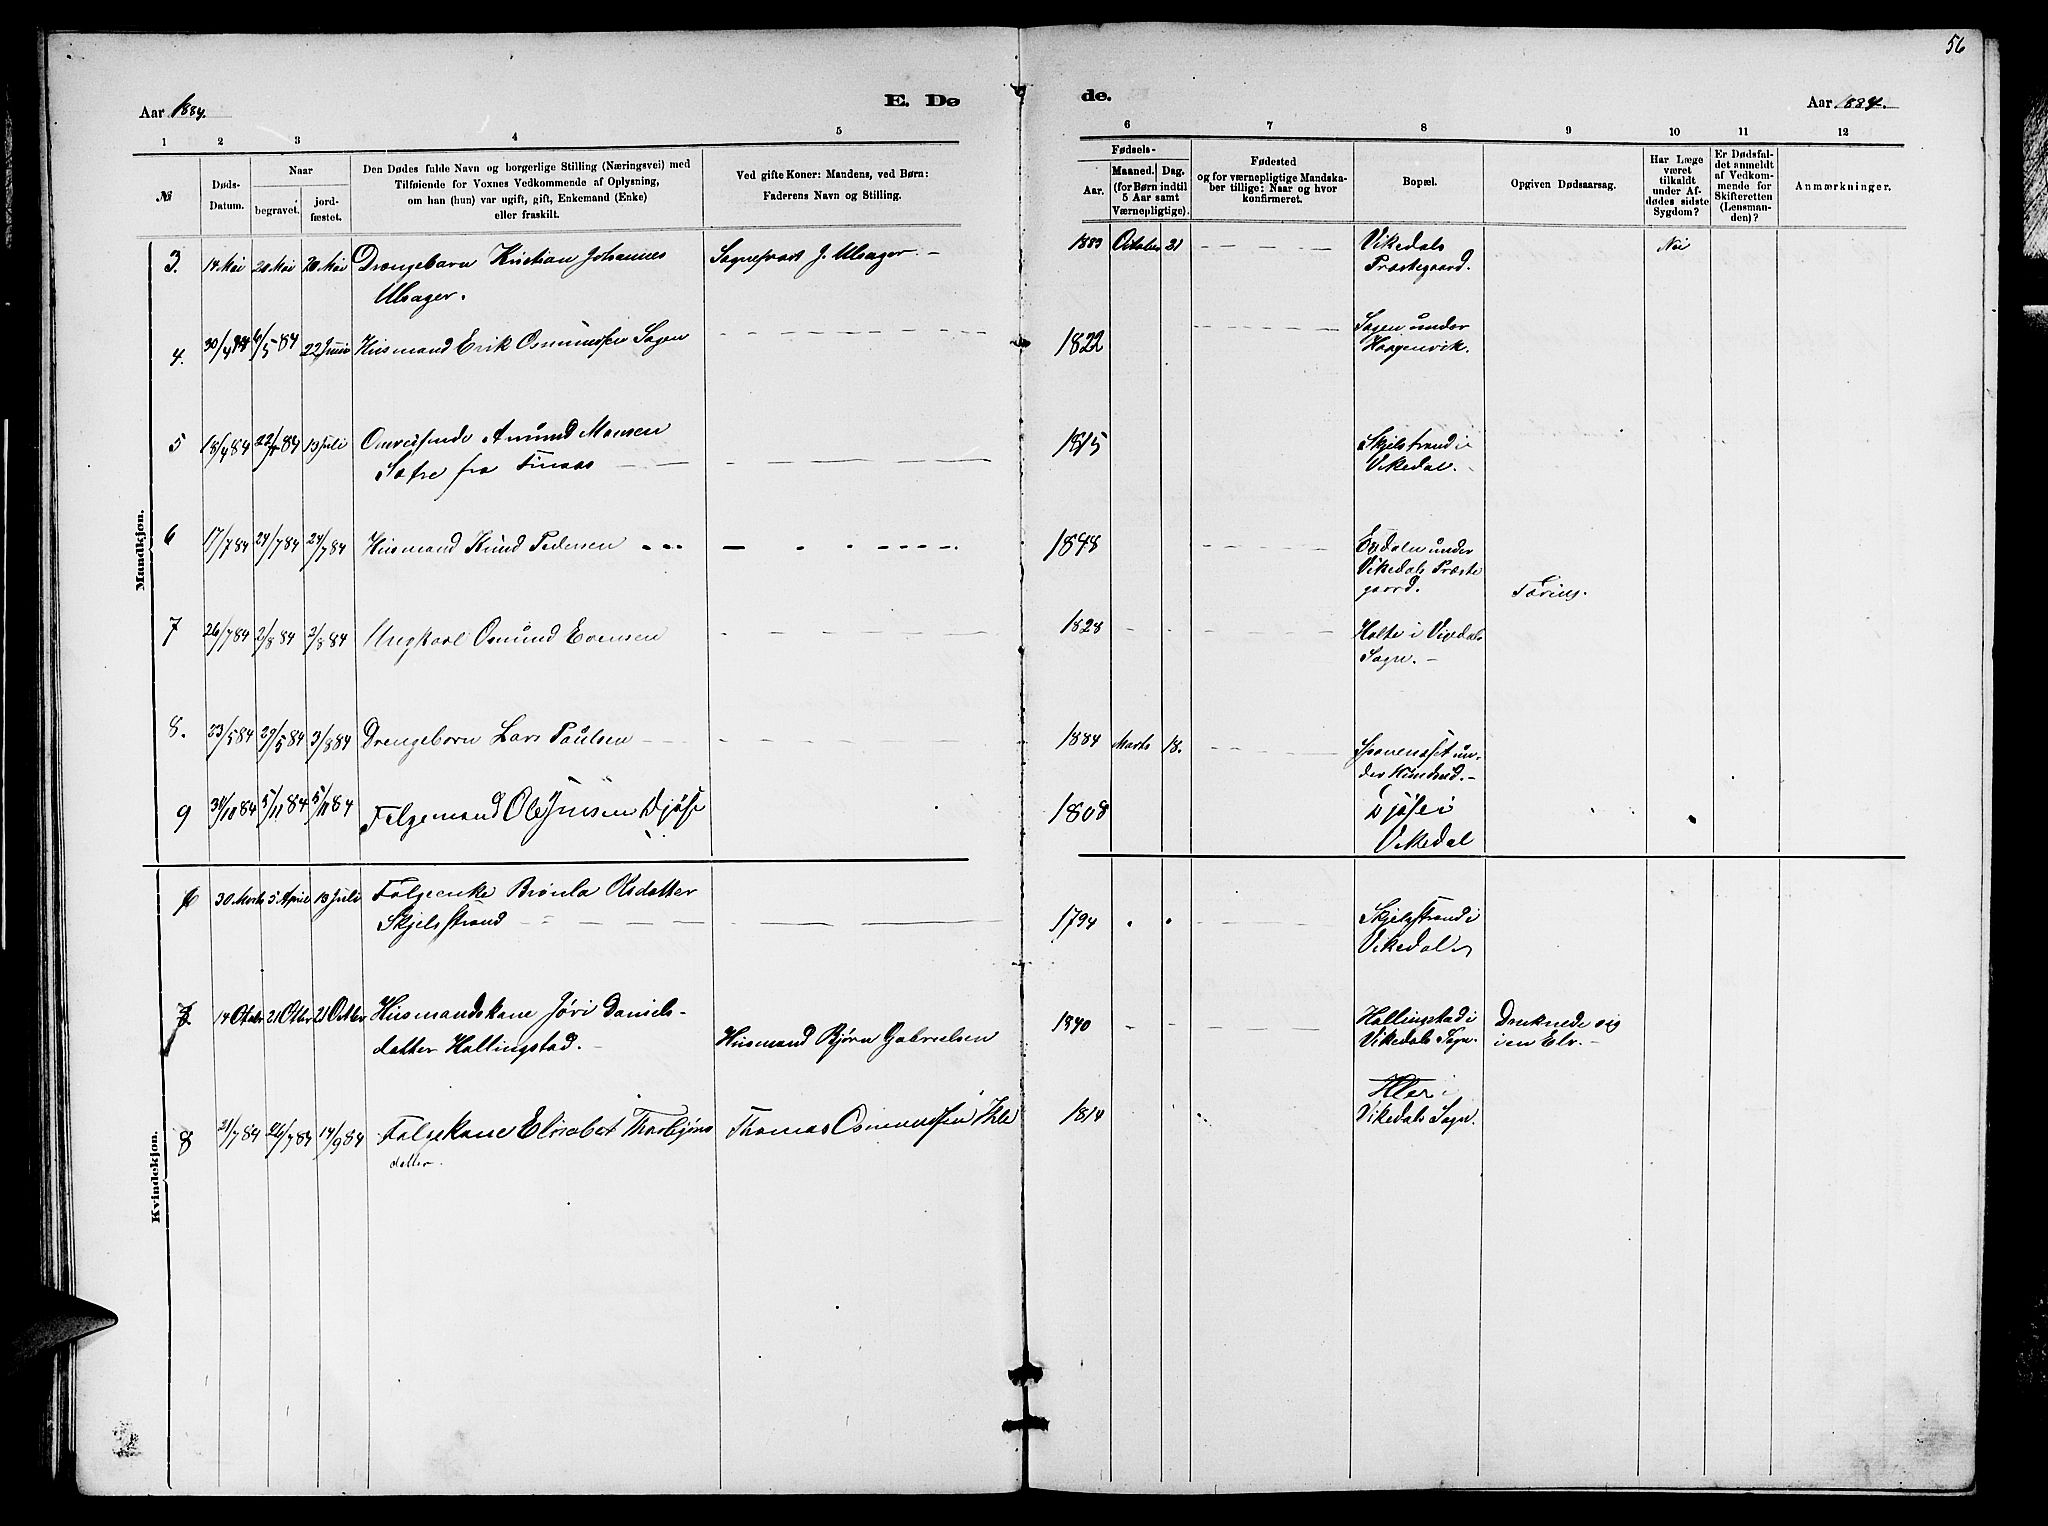 56
Aar 1884.
E. Dø
de.
Aar 1884.
1 2 3 4 5 6 7 8 9 10 11 12
№
Døds-
Datum.
Naar
begravet.
jord-
fæstet.
Den Dødes fulde Navn og borgerlige Stilling (Næringsvei) med
Tilføiende for Voxnes Vedkommende af Oplysning,
om han (hun) var ugift, gift, Enkemand (Enke)
eller fraskilt.
Ved gifte Koner: Mandens, ved Børn:
Faderens Navn og Stilling.
Fødsels-
Aar.
Maaned. Dag.
(for Børn indtil
5 Aar samt
Værnepligtige).
Fødested
og for værnepligtige Mandska-
ber tillige: Naar og hvor
konfirmeret.
Bopæl.
Opgiven Dødsaarsag.
Har Læge
været
tilkaldt
under Af-
dødes sidste
Sygdom?
Er Dødsfal-
det anmeldt
af Vedkom-
mende for
Skifteretten
(Lensman-
den)?
Anmærkninger.
Mandkjøn.
3. 14 Mai 20 Mai 20 Mai Drengebarn Kristian Johannes Sognepræst J. Ulsager. 1883 October 21 Vikedals Nei
Ulsager. Præstegaard.
4. 30/4 84 9/5 84 22 Juni Husmand Erik Osmundsen Sagen 1822 Sagen under
Haagenvik.
5 18/4 84 22/4 84 13 Juli Omreisende Amund Monsen 1815 Skjelstrand i
Sætre fra Finaas Vikedal.
6 17/7 84 24/7 84 24/7 84 Husmand Knud Pedersen 1848 under
Vikedals Præste
gaard. Tæring.
7 26/7 84 2/8 84 2/8 84 Ungkarl Osmund Evensen 1828 Halte i Vikedals
Sogn.
8. 23/5 84 29/5 84 3/8 84 Drengebarn Lars Paulsen 1884 Marts 18. un-
der Kindred.
9 31/10 84 5/11 84 5/11 84 Følgemand Ole Jensen Djøse 1808 Djøse i
Vikedal
Kvindekjøn.
6 30 Marts 5 April 13 Juli Følgeenke Brønla Olsdatter 1794 Skjelstrand i
Skjelsstrand Vikedal
7 14 Octobr 21 Octbr 21 Octbr Husmandskone Jøri Daniels- Husmand Bjørn Gabrielsen 1840 Hallingstad i Druknede sig
datter Hallingstad. Vikedals Sogn. i en Elv.
8 21/7 84 26/7 84 14/9 84 Følgekone Elisabet Thorbjøns Thomas Osmundsen Ihle 1814 Ihler i
datter. Vikedals Sogn.